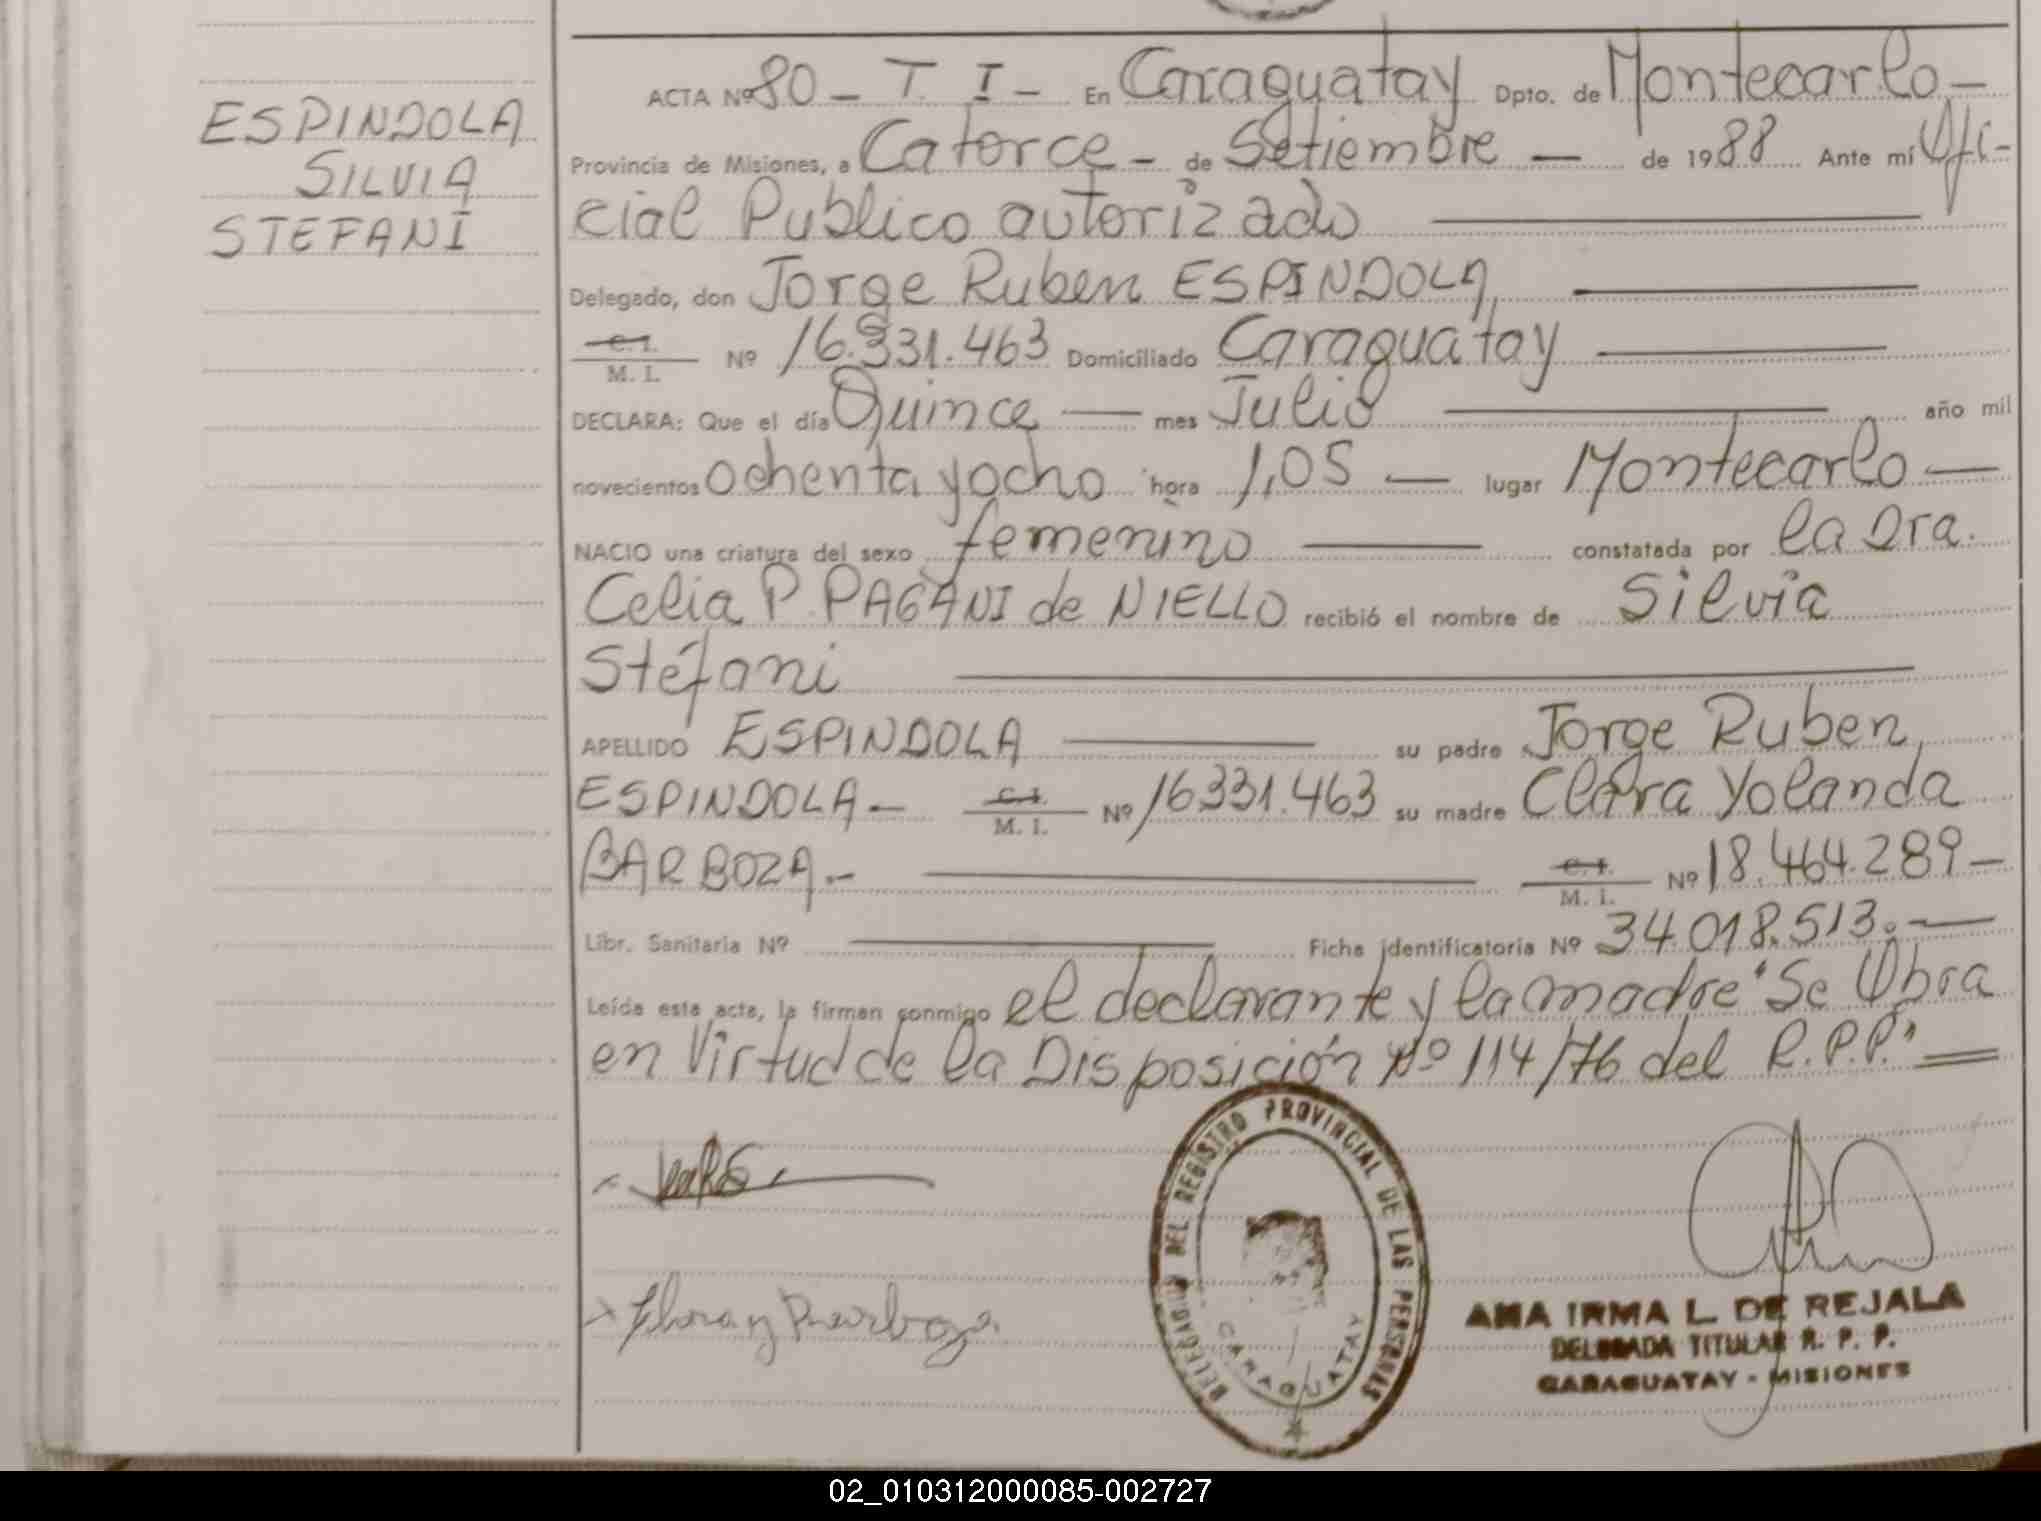 ESPINDOLA
SILVIA
STEFANI
ACTA Nº 80 - T. I - En Caraguatay Dpto. de Montecarlo -
Provincia de Misiones, a Catorce - de Setiembre — de 1988 Ante mí Ofi-
cial Publico autorizado
Delegado, don Jorge Ruben ESPINDOLA,
C. I. / M. I. Nº 16.331.463 Domiciliado Caraguatay
DECLARA: Que el día Quince — mes Julio — año mil
novecientos ochenta y ocho hora 1,05 — lugar Montecarlo —
NACIO una criatura del sexo femenino — constatada por la Dra.
Celia P. PAGANI de NIELLO recibió el nombre de Silvia
Stéfani
APELLIDO ESPINDOLA — su padre Jorge Ruben,
ESPINDOLA - C. I. / M. I. Nº 16331.463 su madre Clara Yolanda
BARBOZA.- C. I. / M. I. Nº 18.464.289 -
Libr. Sanitaria Nº — Ficha identificatoria Nº 34.018.513. —
Leída esta acta, la firman conmigo el declarante y la madre "Se Obra
en Virtud de la Disposición Nº 114/76 del R.P.P."
DELEGACION DEL REGISTRO PROVINCIAL DE LAS PERSONAS
CARAGUATAY
ANA IRMA L. DE REJALA
DELEGADA TITULAR R. P. P.
CARAGUATAY - MISIONES
02_010312000085-002727